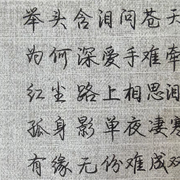 举头含泪问苍天
为何深爱手难牵
红尘路上相思泪
孤身影单夜凄寒
有缘无份难成双